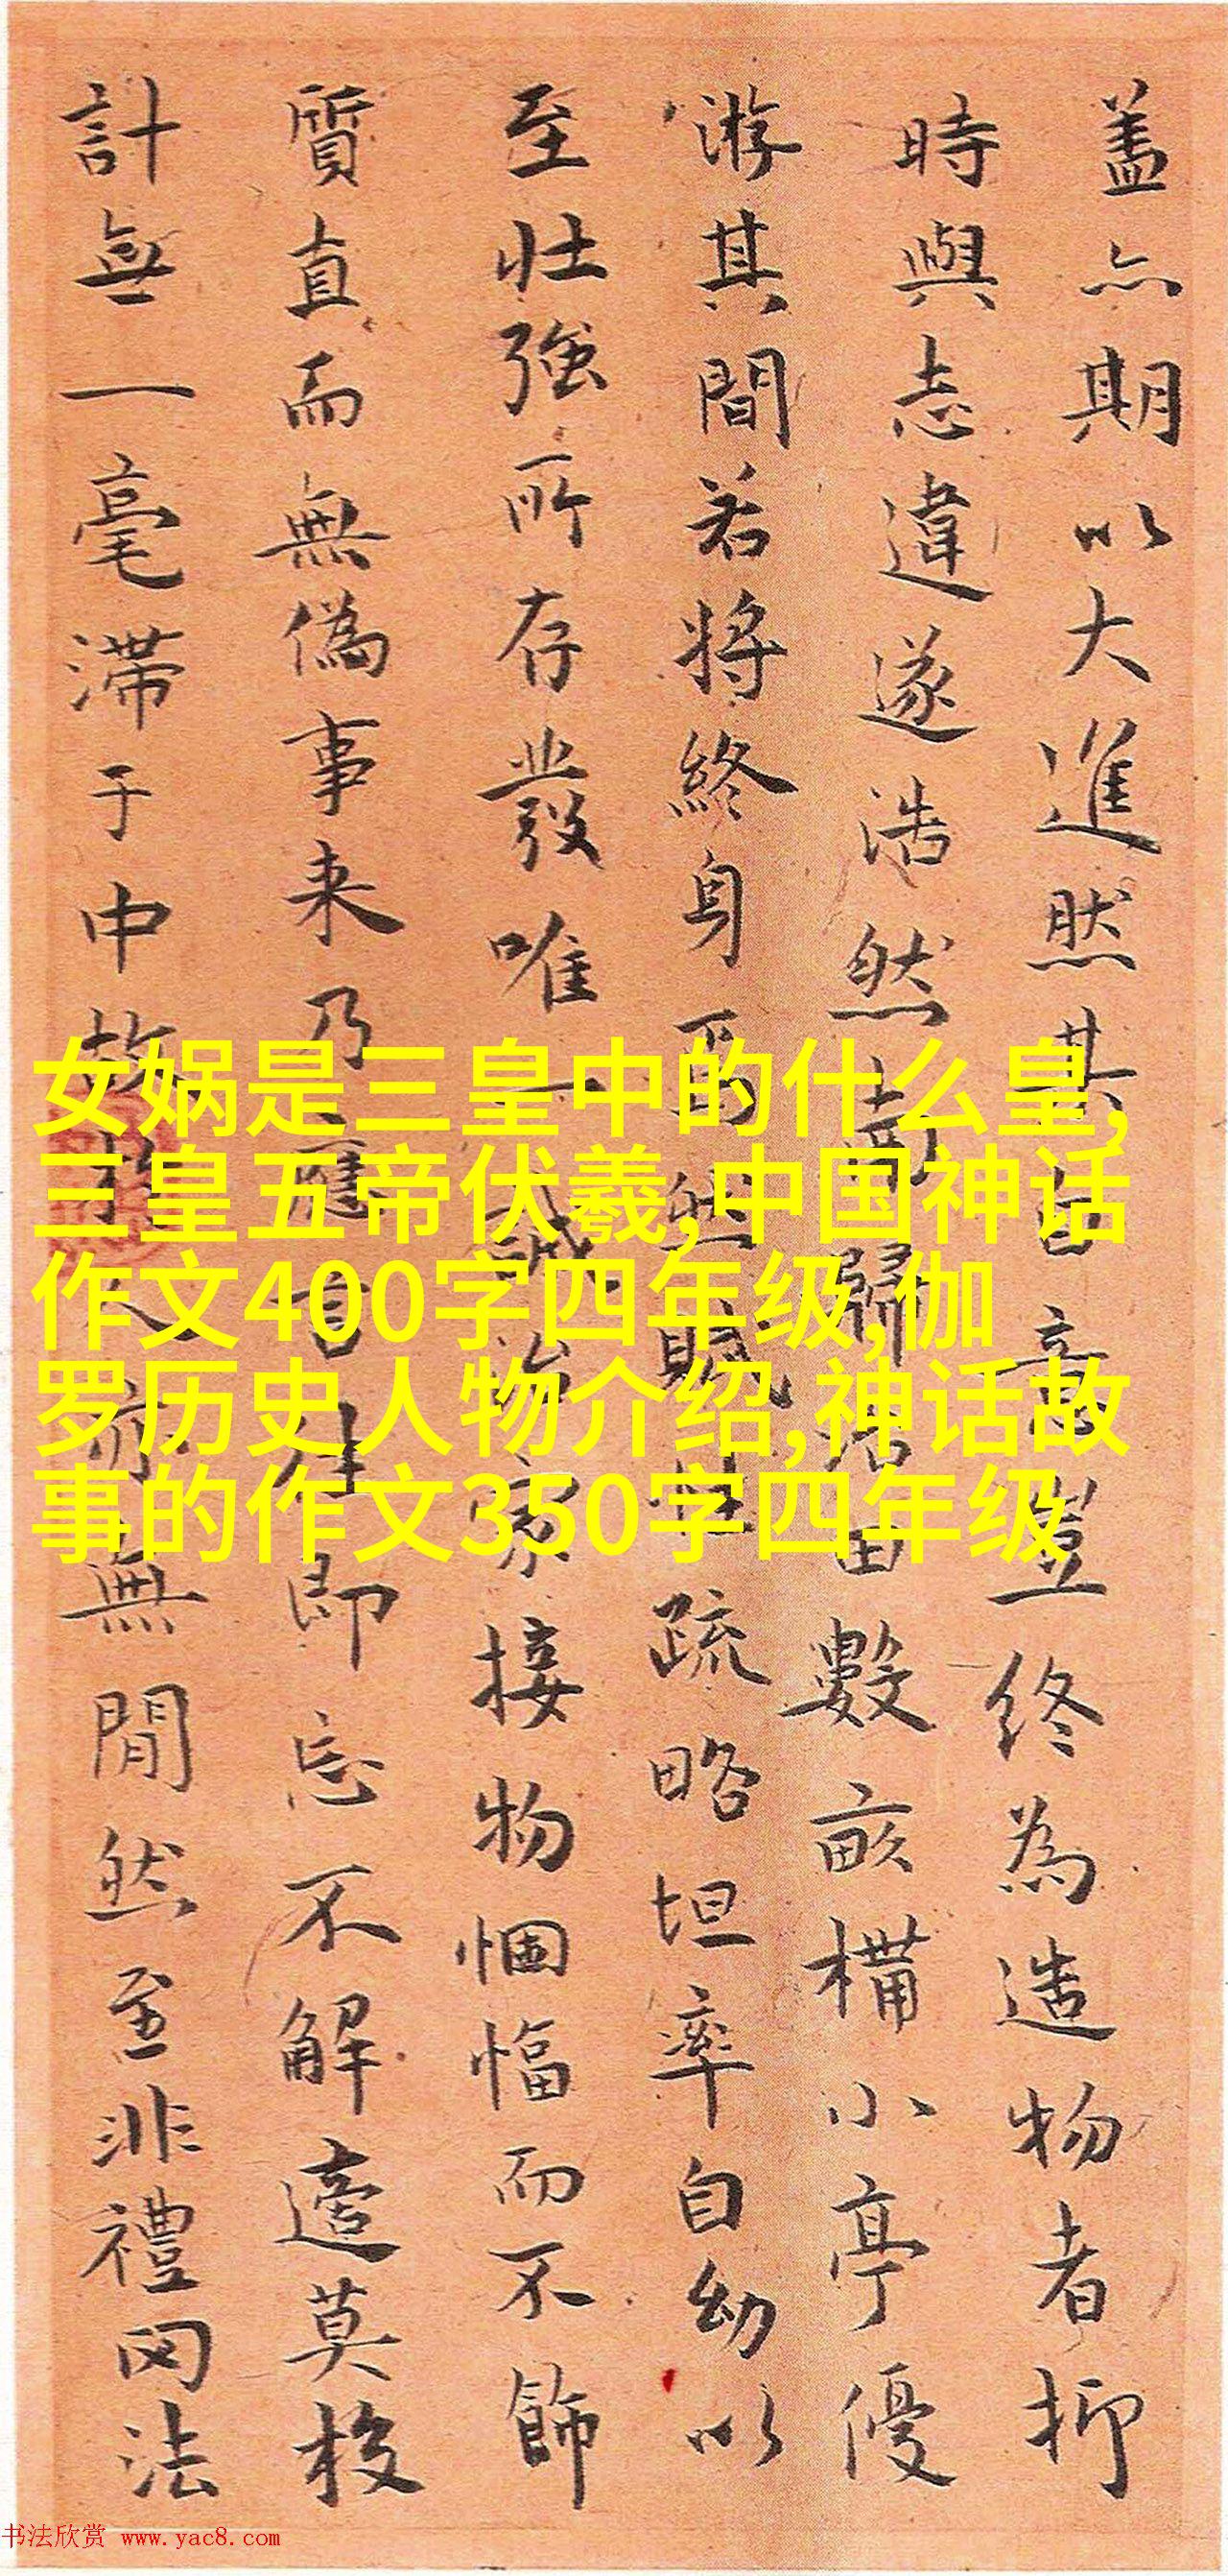 盖亦期以大進然其自意豈終為造物者抑
時與志違遂浩然歸田數畝構小亭優
游其間若将終身焉然賦性疏略坦率自幼以
至壮強所存發唯一誠治家接物悃愊而不飾
質直而無偽事来乃應往即忘不解莫校
計無一毫滞于中故人無間然至非禮罔法
女娲是三皇中的什么皇,
三皇五帝伏羲,中国神话
作文400字四年级,伽
罗历史人物介绍,神话故
事的作文350字四年级
书法欣赏 www.yac8.com